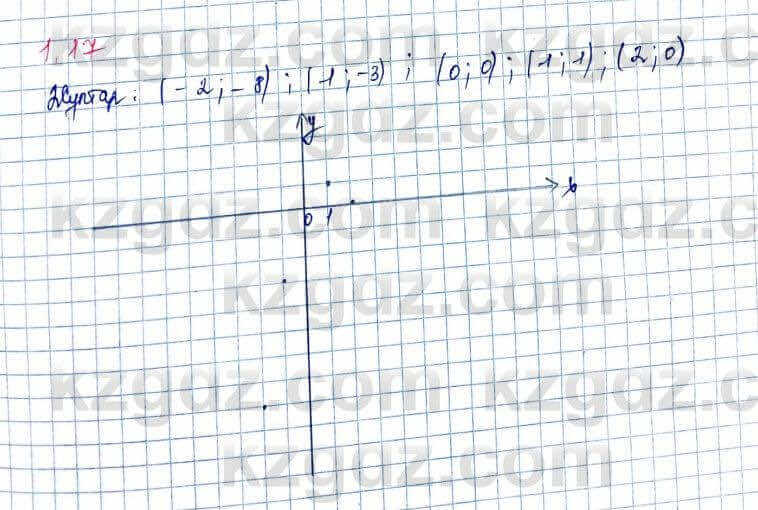 1.17
Жұптар: (-2; -8); (-1; -3); (0; 0); (1; 1); (2; 0)
y
x
0 1
kzgdz.com
kzgdz.com
kzgdz.com
kzgdz.com
kzgdz.com
kzgdz.com
kzgdz.com
kzgdz.com
kzgdz.com